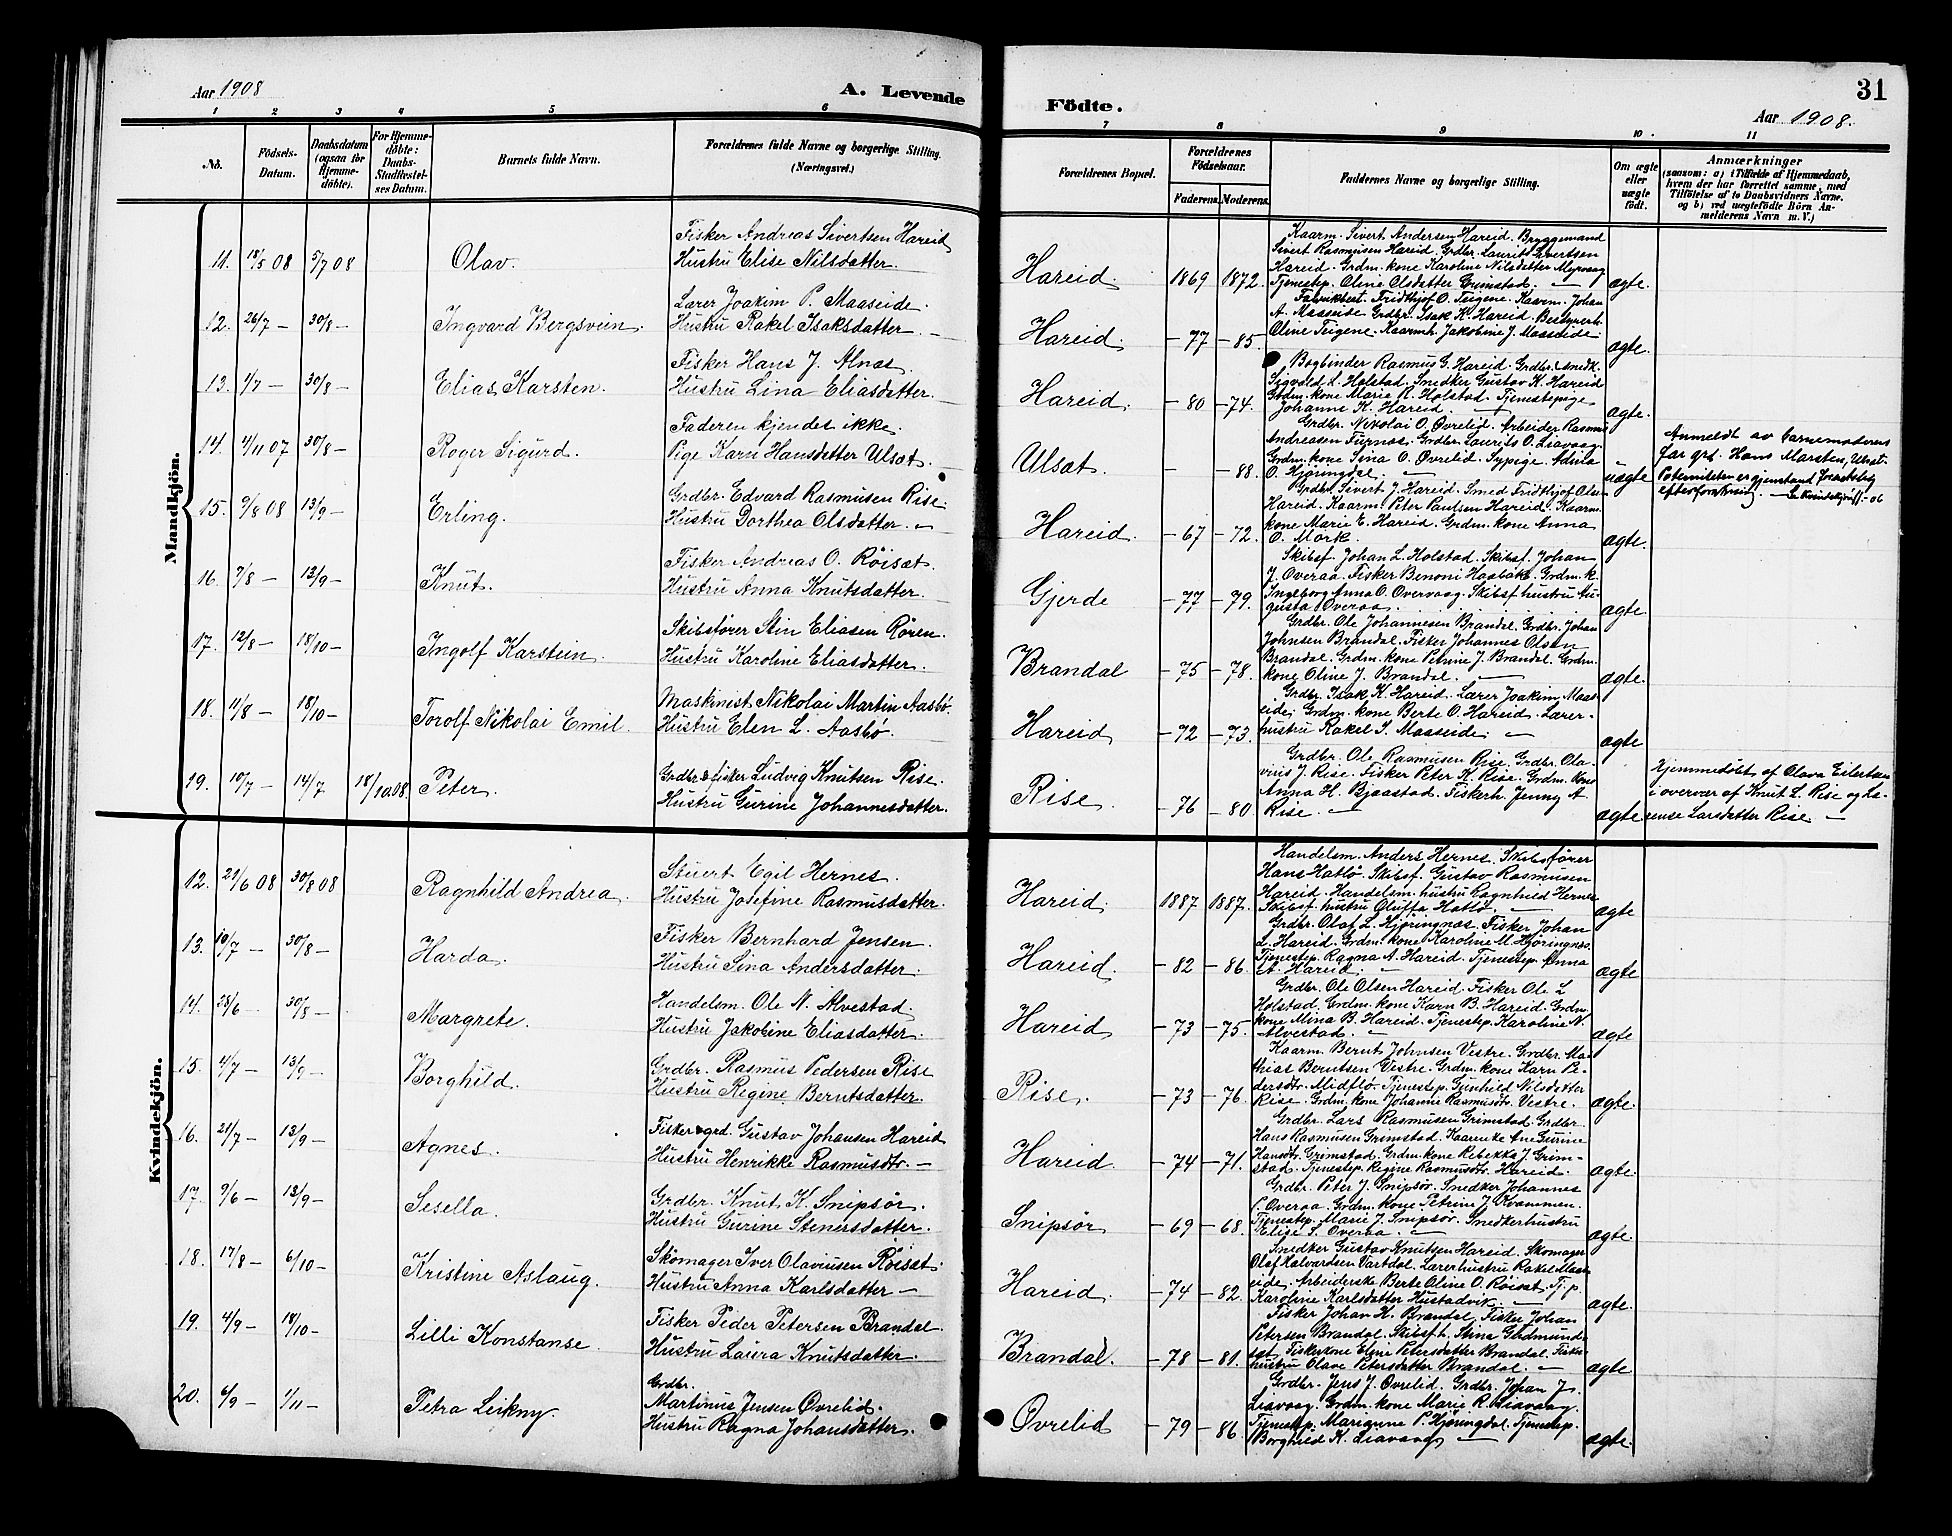 31
Aar 1908
A. Levende
Födte.
Aar 1908.
1 2 3 4 5 6 7 8 9 10 11
No.
Födsels-Datum.
Daabsdatum (ogsaa for Hjemmedöbte).
For Hjemmedöbte: Daabs-Stadfæstelses Datum.
Barnets fulde Navn.
Forældrenes fulde Navne og borgerlige Stilling. (Næringsvei.)
Forældrenes Bopæl.
Forældrenes Födselsaar.
Faderens. Moderens.
Faddernes Navne og borgerlige Stilling.
Om ægte eller uægte födt.
Anmærkninger
(saasom: a) i Tilfælde af Hjemmedaab, hvem der har forrettet samme, med Tilföielse af to Daabsvidners Navne, og b) ved uægtefödte Börn Anmelderens Navn m. V.)
Mandkjön.
11. 18/5 08 5/7 08 Olav.
Fisker Andreas Sivertsen Hareid
Hustru Elise Nilsdatter.
Hareid 1869 1872.
Kaarm. Sivert Andersen Hareid. Bryggemand
Sivert Rasmusen Hareid. Grdbr. Laurits Sivertsen
Hareid. Grdm. kone Karoline Nilsdatter Myrvaag
Tjenestep. Oline Olsdatter Grimstad. —
ægte.
12. 26/7 — 30/8 — Ingvard Bergsvein.
Lærer Joakim P. Maaseide.
Hustru Rakel Isaksdatter. —
Hareid. — 77 — 85.
Fabrikbest. Fridthjof O. Teigene. Kaarm. Johan
A. Maaseide. Grdbr. Isak K. Hareid. Bestyrerh.
Oline Teigene. Kaarmh. Jakobine J. Maaseide.
ægte.
13. 1/7 — 30/8 — Elias Karsten.
Fisker Hans J. Alnæs.
Hustru Lina Eliasdatter. —
Hareid. — 80 — 74.
Bogbinder Rasmus G. Hareid. Grdbr. Smedk.
Sigvald L. Holstad. Snedker Gustav K. Hareid
Grdm. kone Marie R. Holstad. Tjenestepige
Johanne K. Hareid. —
ægte.
14. 4/11 07 30/8 — Roger Sigurd.
Faderen kjendes ikke.
Pige Karn Hansdatter Ulsæt.
Ulsæt. — — 88.
Grdbr. Nikolai O. Øvrelid. Arbeider Rasmus
Andreasen Furnæs. Grdbr. Laurits O. Liavaag.
Grdm. kone Sina O. Øvrelid. Sypige Adina
O. Hjøringdal. —
uægte
Anmeldt av barnemoderens
far grd. Hans Marsten, Ulsæt.
Paterniteten er gjenstand for
efterforskning.
15. 9/8 08 13/9 — Erling.
Grdbr. Edvard Rasmusen Rise.
Hustru Dorthea Olsdatter. —
Hareid. — 67 — 72.
Grdbr. Sivert J. Hareid. Smed Fridthjof Olsen
Hareid. Kaarm. Peter Paulsen Hareid. Kaarm.
kone Marie E. Hareid. Grdm. kone Anna
O. Mork.
ægte.
16. 7/8 — 13/9 — Knut.
Fisker Andreas O. Røisæt.
Hustru Anna Knutsdatter.
Gjerde — 77 — 79.
Skibsf. Johan L. Holstad. Skibsf. Johan
J. Overaa. Fisker Benoni Haabakk. Grdm. k.
Ingeborg Anna O. Overvaag. Skibsf. hustru Au-
gusta Overaa.
ægte.
17. 12/8 — 18/10 — Ingolf Karstein.
Skibsfører Stin Eliasen Røren.
Hustru Karoline Eliasdatter.
Brandal — 75 — 78.
Grdbr. Ole Johannesen Brandal. Grdbr. Johan
Johnsen Brandal. Fisker Johannes Olsen
Brandal. Grdm. kone Petrine J. Brandal. Grdm.
kone Oline J. Brandal. —
ægte.
18. 11/8 — 18/10 — Torolf Nikolai Emil.
Maskinist Nikolai Martin Aasbø.
Hustru Elen L. Aasbø.
Hareid — 72 — 73.
Grdbr. Isak K. Hareid. Lærer Joakim Maas-
eide. Grdm. kone Berte O. Hareid. Lærer-
hustru Rakel I. Maaseide. —
ægte
19. 10/7 — 14/7 18/10 08. Peter.
Grdbr. & fisker Ludvig Knutsen Rise.
Hustru Gurine Johannesdatter.
Rise. — 76 — 80.
Grdbr. Ole Rasmusen Rise. Grdbr. Ola-
vius J. Rise. Fisker Peter K. Rise. Grdm. kone
Anna H. Bjaastad. Fiskerh. Jenny A
Rise. —
ægte
Hjemmedøbt af Olava Eilertsen
i overvær af Knut L. Rise og La-
urense Larsdatter Rise. —
Kvindekjön.
12. 21/6 08 30/8 08 Ragnhild Andrea.
Stuert Egil Hernes.
Hustru Josefine Rasmusdatter.
Hareid. 1887 1887.
Handelsm. Anders Hernes. Skibsfører
Hans Hatlø. Skibsf. Gustav Rasmusen
Hareid. Handelsm. hustru Ragnhild Hernes
Skibsf. hustru Oluffa Hatlø. —
ægte
13. 10/7 — 30/8 — Harda.
Fisker Bernhard Jensen.
Hustru Sina Andersdatter.
Hareid. — 82 — 86.
Grdbr. Olaf L. Hjøringnæs. Fisker Johan
L. Hareid. Grdm. kone Karoline M. Hjøringnes.
Tjenestep. Ragna A. Hareid. Tjenestep. Anna
A. Hareid. —
ægte
14. 28/6 — 30/8 — Margrete.
Handelsm. Ole N. Alvestad.
Hustru Jakobine Eliasdatter.
Hareid — 73 — 75.
Grdbr. Ole Olsen Hareid. Fisker Ole L
Holstad. Grdm. kone Karn B. Hareid. Grdm.
kone Mina B. Hareid. Tjenestep. Karoline N.
Alvestad. —
ægte
15. 4/7 — 13/9 — Borghild.
Grdbr. Rasmus Pedersen Rise
Hustru Regine Berntsdatter.
Rise. — 73 — 76.
Kaarm. Bernt Johnsen Vestre. Grdbr. Ma-
thias Berntsen Vestre. Grdm. kone Karn Pe-
dersdtr. Midflø. Tjenestep. Gunhild Nilsdatter
Rise. Grdm. kone Johanne Rasmusdtr. Vestre.
ægte.
16. 21/7 — 13/9 — Agnes.
Fisker & grd. Gustav Johansen Hareid
Hustru Henrikke Rasmusdtr. —
Hareid. — 74 — 71.
Grdbr. Lars Rasmusen Grimstad. Grdbr.
Hans Rasmusen Grimstad. Kaarenke Ane Gurine
Hansdtr. Grimstad. Grdm. kone Rebekka J. Grim-
stad. Tjenestep. Regine Rasmusdtr. Hareid.
ægte.
17. 9/6 — 13/9 — Sesella.
Grdbr. Knut K. Snipsør.
Hustru Gurine Stenersdatter.
Snipsør — 69 — 68.
Grdbr. Peter J. Snipsør. Snedker Johannes
P. Overaa. Grdm. kone Petrine J. Kvammen.
Tjenestep. Marie J. Snipsør. Snedkerhustru
Elise S. Overaa. —
ægte.
18. 17/8 — 6/10 — Kristine Aslaug.
Skomager Iver Olaviusen Røisæt.
Hustru Anna Karlsdatter —
Hareid. — 74 — 82.
Snedker Gustav Knutsen Hareid. Skomager
Olaf Halvardsen Vartdal. Lærerhustru Rakel Maas-
eide. Arbeiderske Berte Oline O. Røisæt. Tj. p.
Karoline Karlsdatter Hustadvik. —
ægte.
19. 4/9 — 18/10 — Lilli Konstanse.
Fisker Peder Petersen Brandal.
Hustru Laura Knutsdatter.
Brandal. — 78 — 81.
Fisker Johan K. Brandal. Fisker Johan
Petersen Brandal. Skibsf. h. Stina Gudmunds-
tøt. Fiskerkone Eline Petersdatter Brandal. Fisker-
hustru Olave Petersdatter Brandal. —
ægte
20. 6/9 — 1/11 — Petra Leikny.
Grdbr.
Martinus Jensen Øvrelid.
Hustru Ragna Johansdatter.
Øvrelid — 79 — 86.
Grdbr. Jens J. Øvrelid. Grdbr. Johan J.
Liavaag. Grdm. kone Marie R. Liavaag.
Tjenestep. Marianne P. Hjøringdal. Tjenestep.
Borghild K. Liavaag —
ægte.